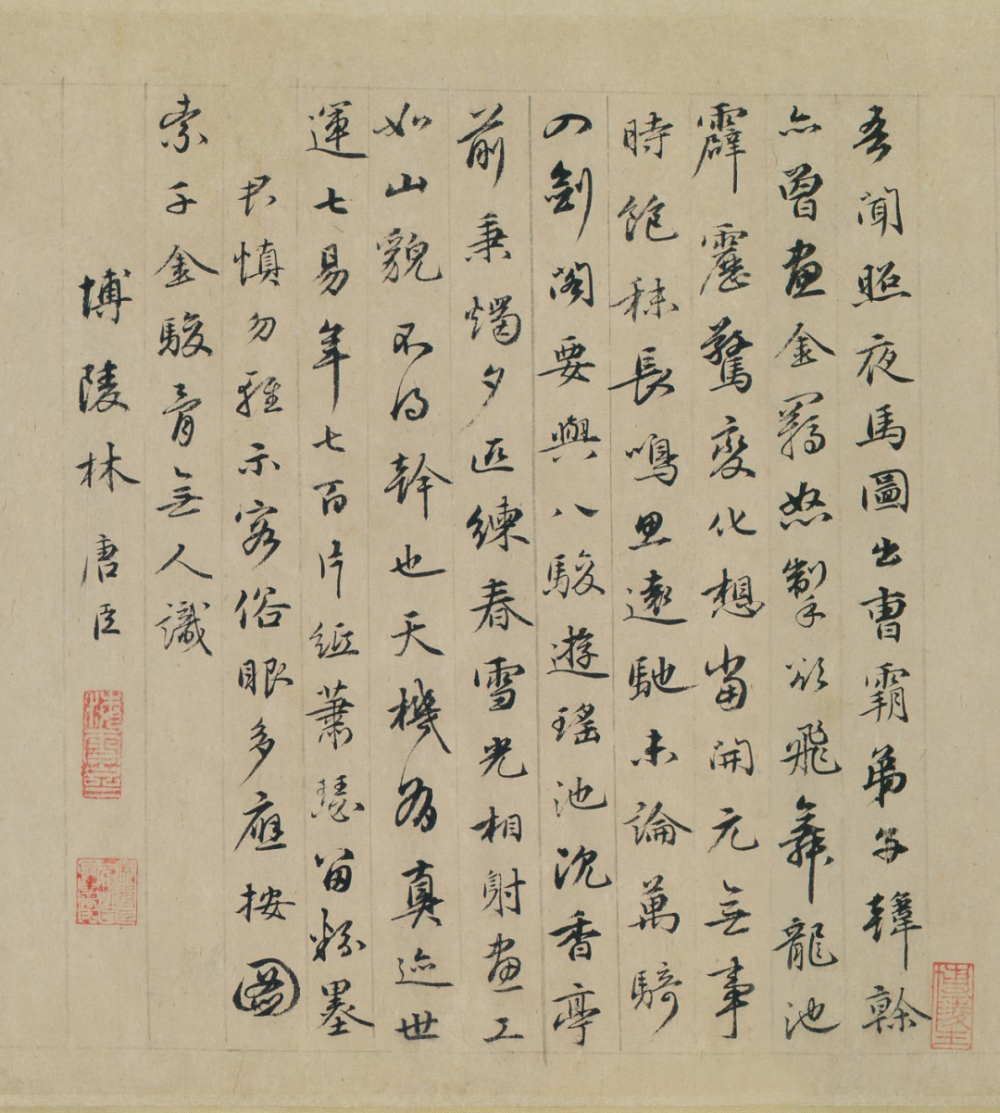 吾聞照夜馬圖出曹霸弟子韓幹
亦曾畫金羈怒掣欲飛舞龍池
霹靂驚變化想當開元無事
時飽秣長鳴思遠馳未論萬騎
入劍閣要與八駿遊瑤池沈香亭
前秉燭夕匹練春雪光相射畫工
如山貌不得幹也天機有真迹世
運七易年七百片紙蕭瑟留粉墨
君慎勿輕示客俗眼多應按圖
索千金駿骨無人識
博陵林唐臣